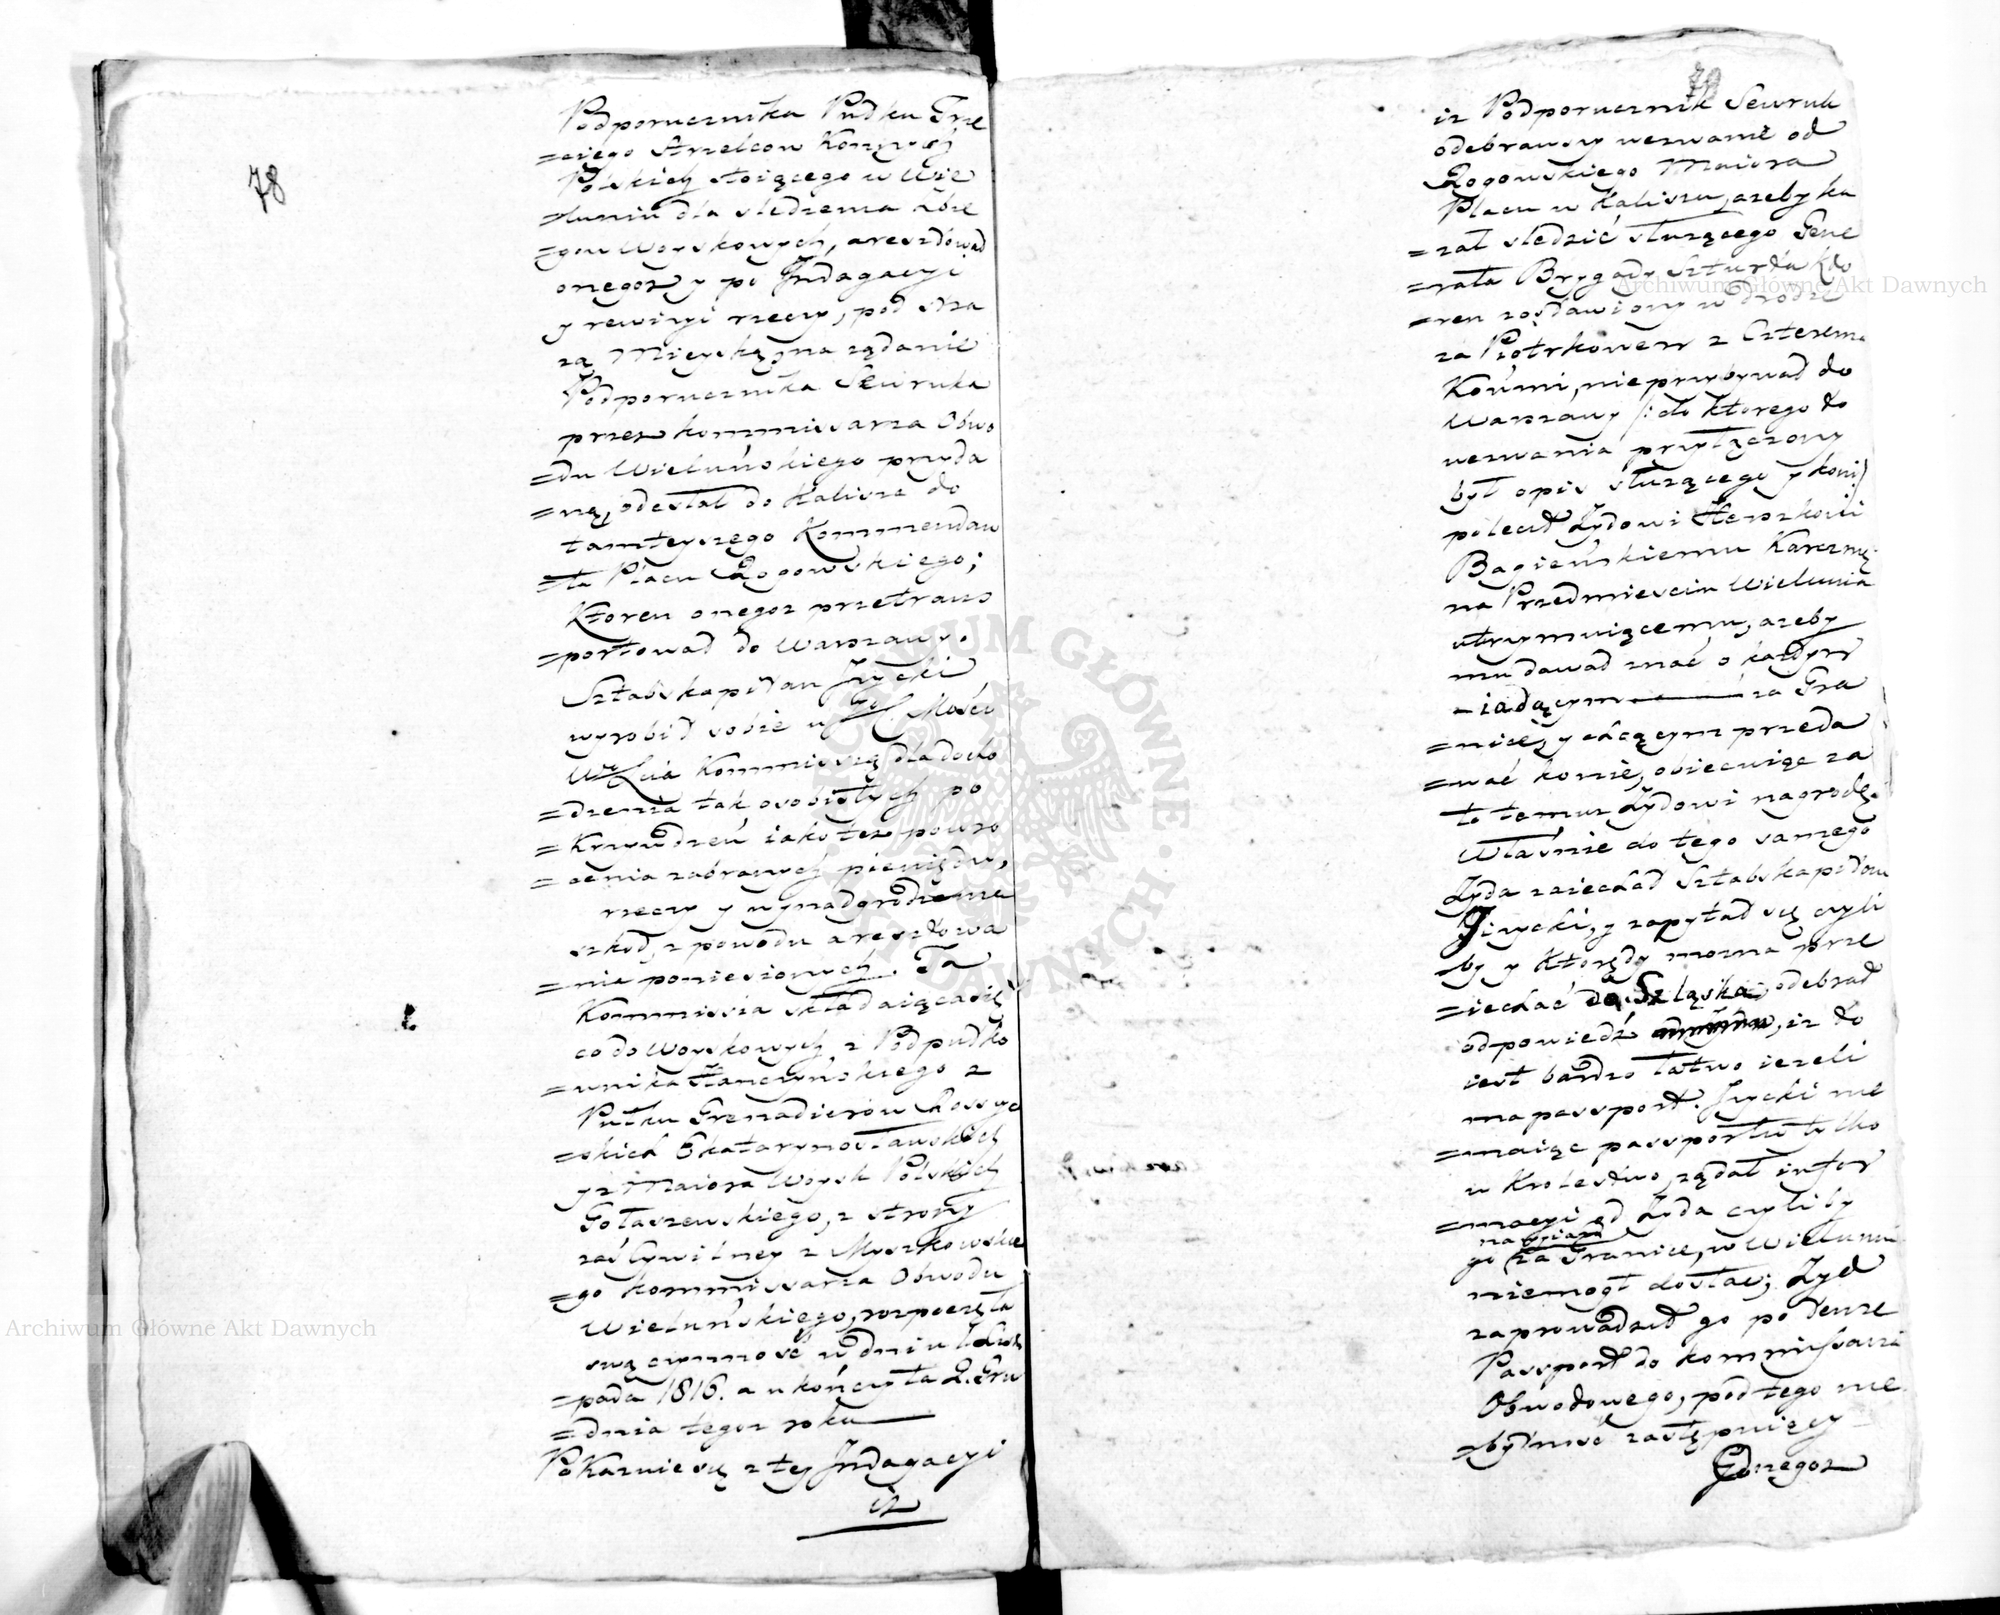 78
Podporucznika Pułku Trze
=ciego Strzelcow Konnych
Polskich stoiącego w Wie
=luniu dla sledzenia zbie
=gow Woyskowych, aresztował
onegoz y po Indagacyi
y rewizyi rzeczy, pod stra
zą Mieyską, na ządanie
Podporucznika Sewruka
przez kommissarza Obwo
=du Wieluńskiego przyda
=ną, odesłał do Kalisza do
tamteyszego Kommendan
=ta Placu Rogowskiego;
Ktoren onegoz przetrans
=portował do Warszawy.
Sztabskapitan Jzycki
wyrobił sobie u Mości
Xcia Kommissyą dla docho
=dzenia tak osobistych po
=Krzywdzeń iako tez powro
=cenia zabranych pieniędzy,
rzeczy y wynadgrodzenie
szkod, z powodu aresztowa
=nia poniesionych. Ta
Kommissia składaiąca się
co do Woyskowych z Podpułko
=wnika Hanczyńskiego z
Pułku Grenadierow Rossyy
=skich Ekatarynosławskich
y z Maiora Woysk Polskich
Gołaszewskiego, z strony
zaś Cywilney z Myszkowskie
=go kommissarza Obwodu
Wieluńskiego, rozpoczęła
swą czynnosć w dniu Listo
=pada 1816. a ukończyła 2. Gru
=dnia tegoz roku
Pokazuie się z tey Indagacyi
iz
79
iz Podporucznik Sewruk
odebrawszy wezwanie od
Rogowskiego Maiora
Placu w Kaliszu, azeby ka
=zał sledzić słuzącego Gene
=rała Brygady Szturda Kto
=ren zostawiony w drodze
za Piotrkowem z Czterema
Końmi, nie przybywał do
Warszawy /: do ktorego to
wezwania przyłączony
był opis słuzącego y koni /
polecił Zydowi Herszkowi
Bagieńskiemu Karczmę
na Przedmiesciu Wielunia
utrzymuiącemu, azeby
mu dawał znać o kazdym
=iadącym za Gra
=nicę, y chcącym przeda
=wać konie, obiecuiąc za
to temuz Zydowi nagrodę.
Własnie do tego samego
Zyda zaiechał Sztabskapitan
Jzycki, y zapytał się czyli
by y Ktorędy mozna prze
=iechać do Szląska; odebrał
odpowiedź, iz to
iest bardzo łatwo iezeli
ma passport. Jzycki nie
=maiąc passportu tylko
w Krolestwo, ządał infor
=macyi od Zyda czyliby
na wyiazd
go za Granice, w Wieluniu
niemogł dostać; Zyd
zaprowadził go po tenze
Passport do kommissarza
Obwodowego, pod tego nie
=bytność zastępuiący
Gdzie onegoz